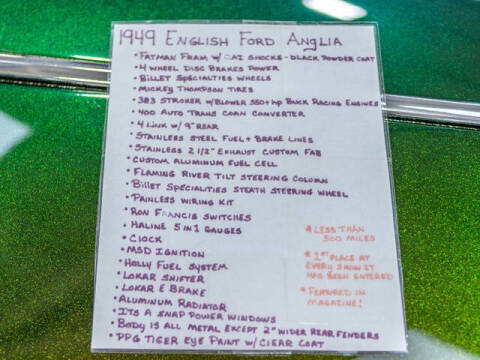 1949 English Ford Anglia
• Fatman Fram w/ QAI Shocks - Black Powder Coat
• 4 Wheel Disc Brakes Power
• Billet Specialties Wheels
• Mickey Thompson Tires
• 383 Stroker w/Blower 550+hp Buck Racing Engines
• 400 Auto Trans Coan Converter
• 4 Link w/ 9" Rear
• Stainless Steel Fuel + Brake Lines
• Stainless 2 1/2" Exhaust Custom Fab
• Custom Aluminum Fuel Cell
• Flaming River Tilt Steering Column
• Billet Specialities Steath Steering Wheel
• Painless Wiring Kit
• Ron Francis Switches
• Haline 5 in 1 Gauges
• Clock
• MSD Ignition
• Holly Fuel System
• Lokar Shifter
• Lokar E Brake
• Aluminum Radiator
• Its a Snap Power Windows
• Body is all Metal Except 2" Wider Rear Fenders
• PPG Tiger Eye Paint w/ Clear Coat
* Less Than
500 Miles
* 1st Place at
Every Show It
Has Been Entered
* Featured in
Magazine!